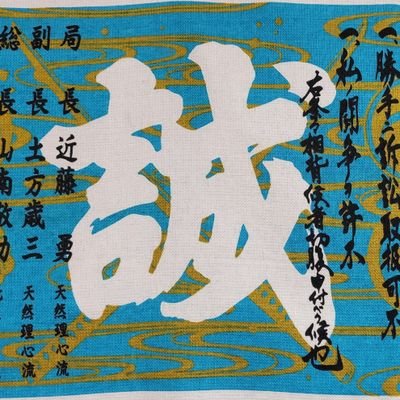 一、勝手ニ訴訟取扱可不
一、私闘争ヲ許不
右条々相背候者切腹申付ベク候也
誠
局長 近藤 勇 天然理心流
副長 土方歳三 天然理心流
総長 山南敬助